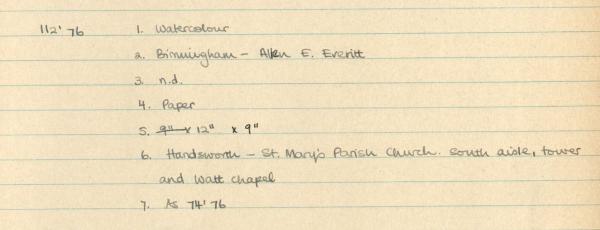 112' 76 1. Watercolour
2. Birmingham - Allen E. Everitt
3. n.d.
4. Paper
5. 9" x 12" x 9"
6. Handsworth - St. Mary's Parish Church. South aisle, tower
and Watt Chapel
7. As 74' 76